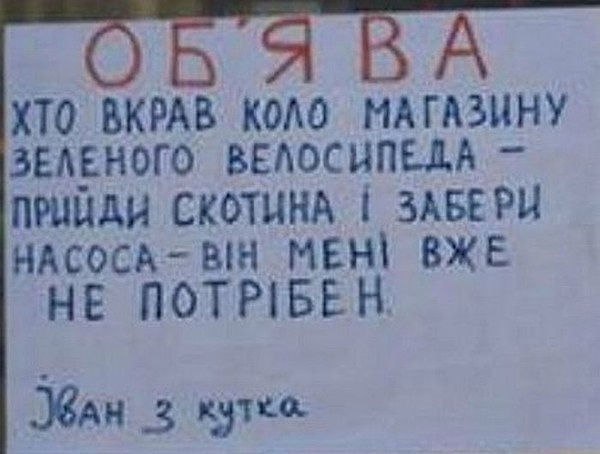 ОБ'ЯВА
ХТО ВКРАВ КОЛО МАГАЗИНУ
ЗЕЛЕНОГО ВЕЛОСИПЕДА –
ПРИЙДИ СКОТИНА І ЗАБЕРИ
НАСОСА – ВІН МЕНІ ВЖЕ
НЕ ПОТРІБЕН.
Іван з кутка